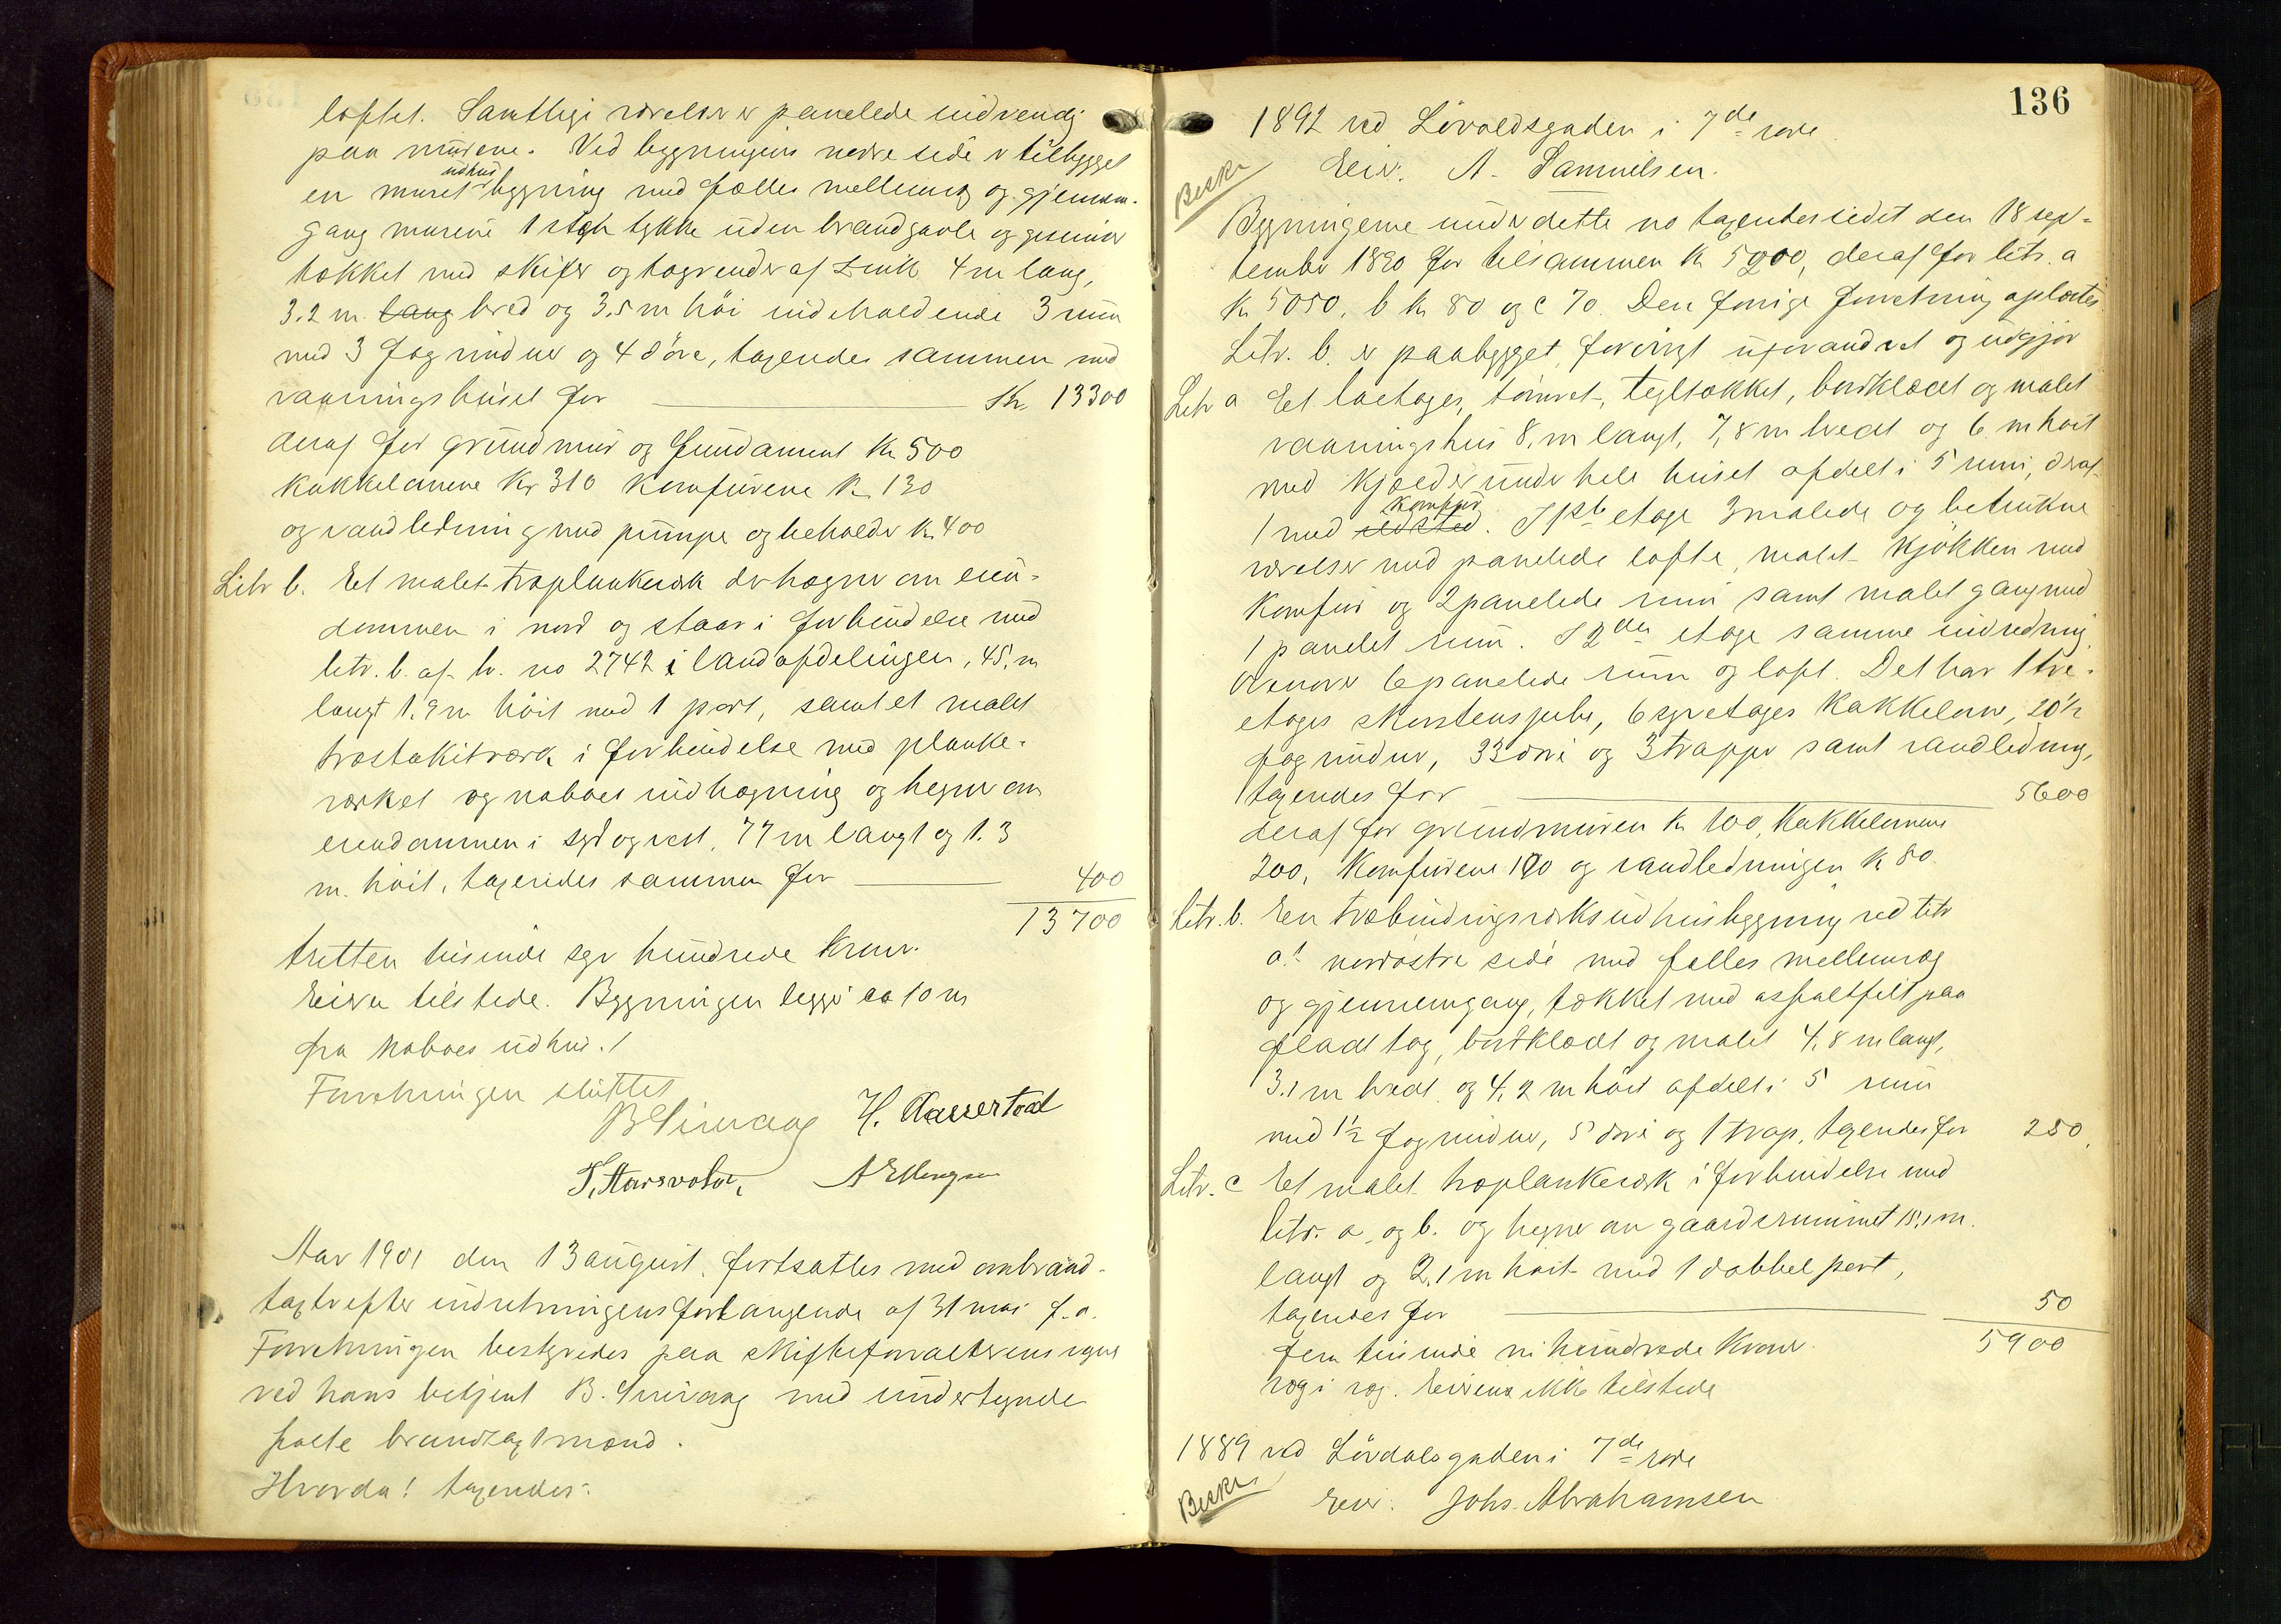 loftet. Samtlige værelser er panelede indvendig
paa murene. Ved bygningens nedre side er tilbygget
en muret udhusbygning med fælles mellemvæg og gjennem-
gang murene 1 sten tykke uden brandgavle og gesimser
tækket med skifer og tagrender af zink 4 m lang,
3.2 m. lang bred og 3.5 m höi indeholdende 3 rum
med 3 fag vinduer og 4 döre, taxeredes sammen med
vaaningshuset for Kr. 13300
deraf for grundmur og fundament Kr 500
kakkelovnene Kr 310 komfurene Kr 130
og vandledning med pumpe og beholder Kr. 400
Litr b. Et malet træplankeværk der hegner om eien-
dommen i nord og staar i forbindelse med
litr. b. af br. no 2742 i landafdelingen, 45, m
langt 1.9 m höit med 1 port, samt et malet
træstakitværk i forbindelse med planke-
værket og naboes indhegning og hegner om
eiendommen i syd og vest, 77 m langt og 1.3
m. höit, taxeredes sammen for 400
13700
tretten tusinde syv hundrede Kroner.
Eieren tilstede. Bygningen ligger ca 10 m
fra naboes udhus./
Forretningen sluttet
B Sinvaag H. Aasertvedt
T. Aarsvold, A Ellingsen
Aar 1901 den 13 august. fortsattes med ombrand-
taxter efter indretningens forlangende af 31 mai f. a.
Forretningen bestyredes paa skifteforvalterens vegne
ved hans betjent B. Sinvaag med undertegnede
faste brandtaxtmænd.
Hvorda! taxeredes:
136
1892 ved Lövoldsgaden i 7de rode.
Beskr
Eier: A. Samuelsen.
Bygningerne under dette no taxeredes sidst den 18 sep-
tember 1890 for tilsammen Kr 5200, deraf for litr. a
Kr 5050, b Kr 80 og c 70. Den forrige forretning oplæstes.
Litr. b. er paabygget, forövrigt uforandret og udgjör
Litr a Et toetages, tömret, tegltækket, bordklædt og malet
vaaningshus 8, m langt, 7,8 m bredt og 6. m höit
med kjælder under hele huset afdelt i 5 rum, deraf
1 med ildsted komfur. I 1ste etage 3 malede og betrukne
værelser med panelede lofte, malet kjökken med
komfur og 2 panelede rum samt malet gang med
1 panelet rum. I 2den etage samme indredning
Ovenover 6 panelede rum og loft. Det har 1 tre-
etages skorstenspibe, 6 syvetages kakkelovne, 20½
fag vinduer, 33 döre og 3 trapper samt vandledning,
taxeredes for 5600
deraf for grundmuren Kr 100, Kakkelovnene
200, Komfurene 190 og vandledningen Kr 80.
Litr. b. En træbindingsværks udhusbygning ved litr
a.s nordöstre side med fælles mellemvæg
og gjennemgang, tækket med asfaltfilt paa
fladt tag, bordklædt og malet 4,8 m langt,
3.1 m bredt og 4,2 m höit afdelt i 5 rum
med 1½ fag vinduer, 5 döre og 1 trap, taxeredes for 250.
Litr. c Et malet træplankeværk i forbindelse med
litr. a, og b. og hegner om gaardsrummet 15,1 m.
langt og 2,1 m höit med 1 dobbel port,
taxeredes for 50
5900
fem tusinde ni hundrede Kroner.
væg i væg. Eieren ikke tilstede
1889 ved Lövdalsgaden i 7de rode
Beskr
Eier: Johs. Abrahamsen